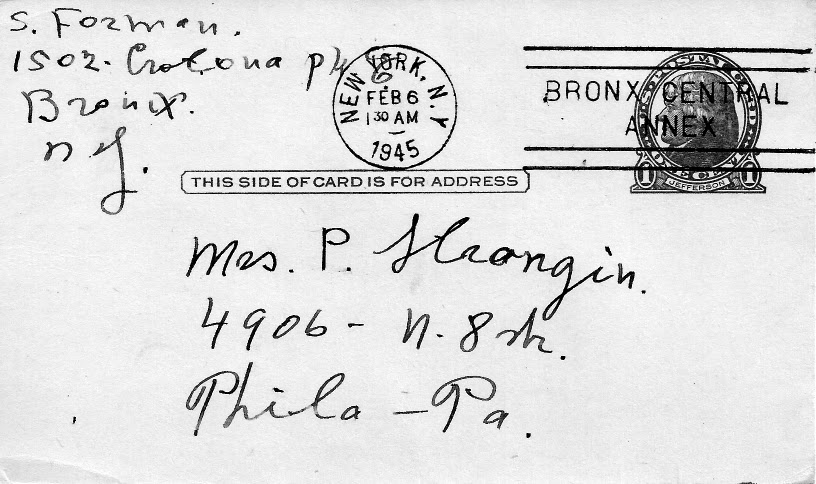 S. Forman.
1502. Crotona pk E
Bronx.
n y.
NEW YORK, N.Y.
FEB 6
1 30 AM
1945
BRONX CENTRAL
ANNEX
JEFFERSON
1 1
THIS SIDE OF CARD IS FOR ADDRESS
Mrs. P. Strongin.
4906 - N. 8 th.
Phila - Pa.